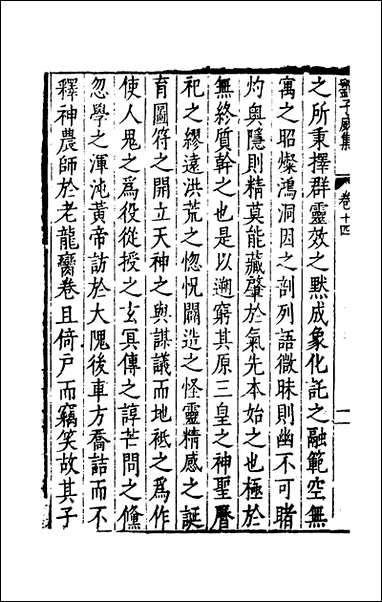 劉子威集 卷十四 二
之所秉擇群靈效之黙成象化託之融範空無
寓之昭燦鴻洞因之剖列語微昧則幽不可睹
灼奥隱則精莫能藏肇於氣先本始之也極於
無終質幹之也是以遡窮其原三皇之神聖曆
祀之繆遠洪荒之惚怳闢造之怪靈精感之誕
育圖符之開立天神之與謀議而地祇之爲作
使人鬼之爲役從授之玄冥傳之諄芒問之儵
忽學之渾沌黄帝訪於大隗後車方喬詰而不
釋神農師於老龍奓卷且倚戶而竊笑故其子